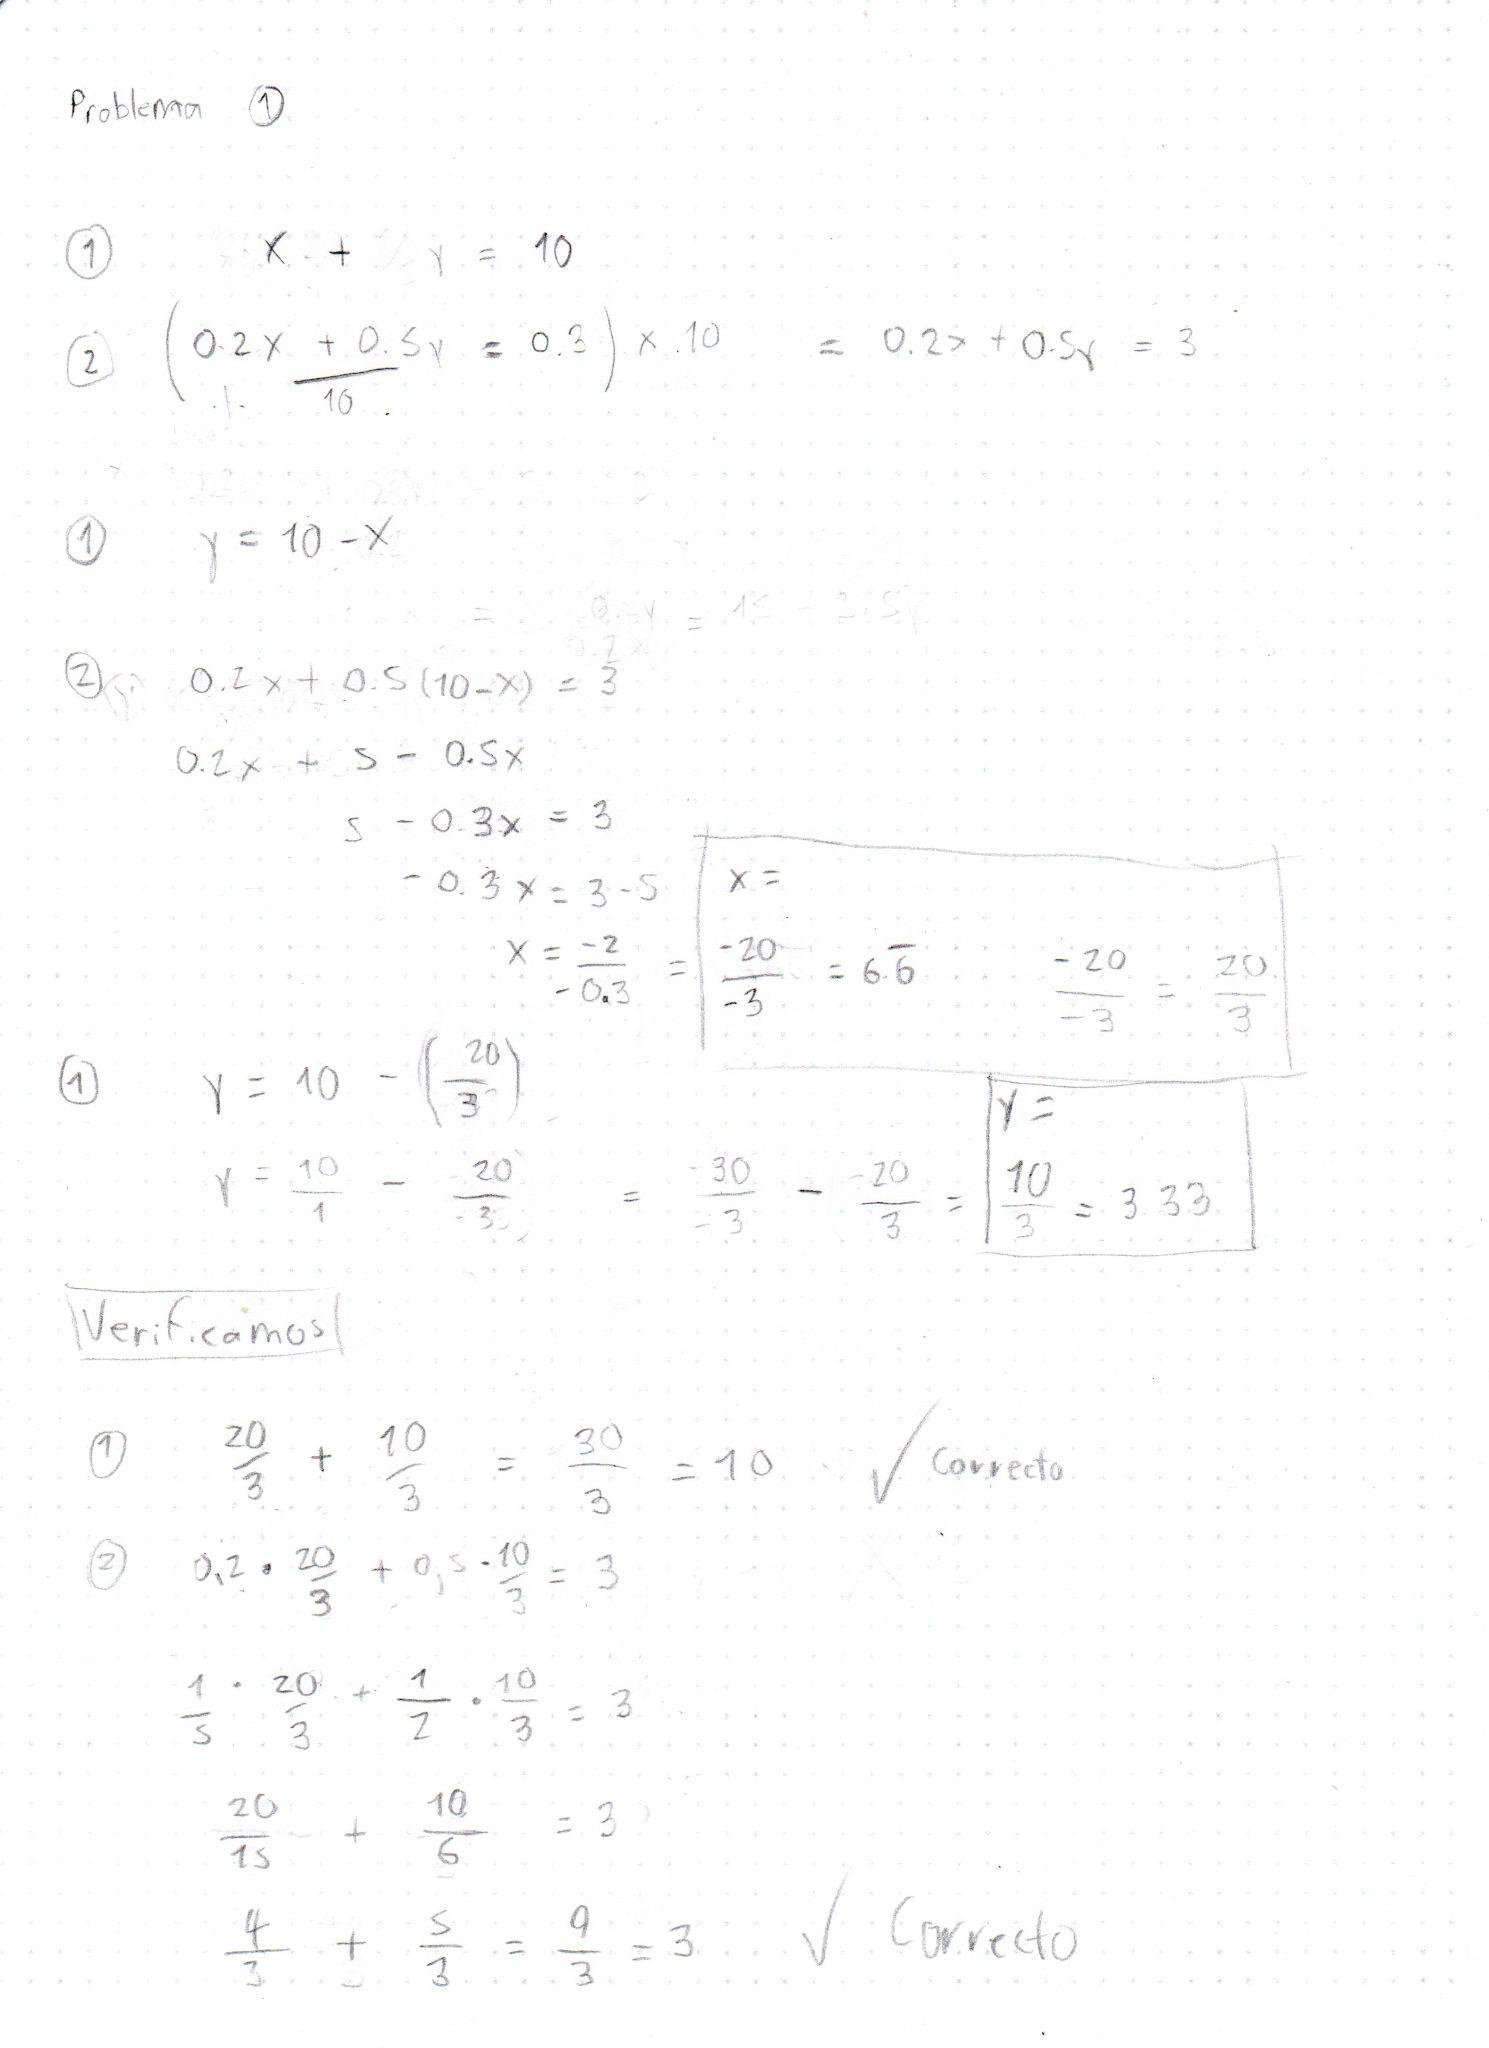 Problema ①
① x + y = 10
② (0.2x + 0.5y / 10 = 0.3) x .10 = 0.2x + 0.5y = 3
① y = 10 - x
② 0.2x + 0.5(10-x) = 3
0.2x + 5 - 0.5x
5 - 0.3x = 3
-0.3x = 3-5
x = -2/-0.3 = x = -20/-3 = 6.6̅ -20/-3 = 20/3
① y = 10 - (20/3)
y = 10/1 - 20/-3 = -30/-3 - -20/3 = y = 10/3 = 3.33
Verificamos
① 20/3 + 10/3 = 30/3 = 10 ✓ Correcto
② 0,2 · 20/3 + 0,5 · 10/3 = 3
1/5 · 20/3 + 1/2 · 10/3 = 3
20/15 + 10/6 = 3
4/3 + 5/3 = 9/3 = 3 ✓ Correcto